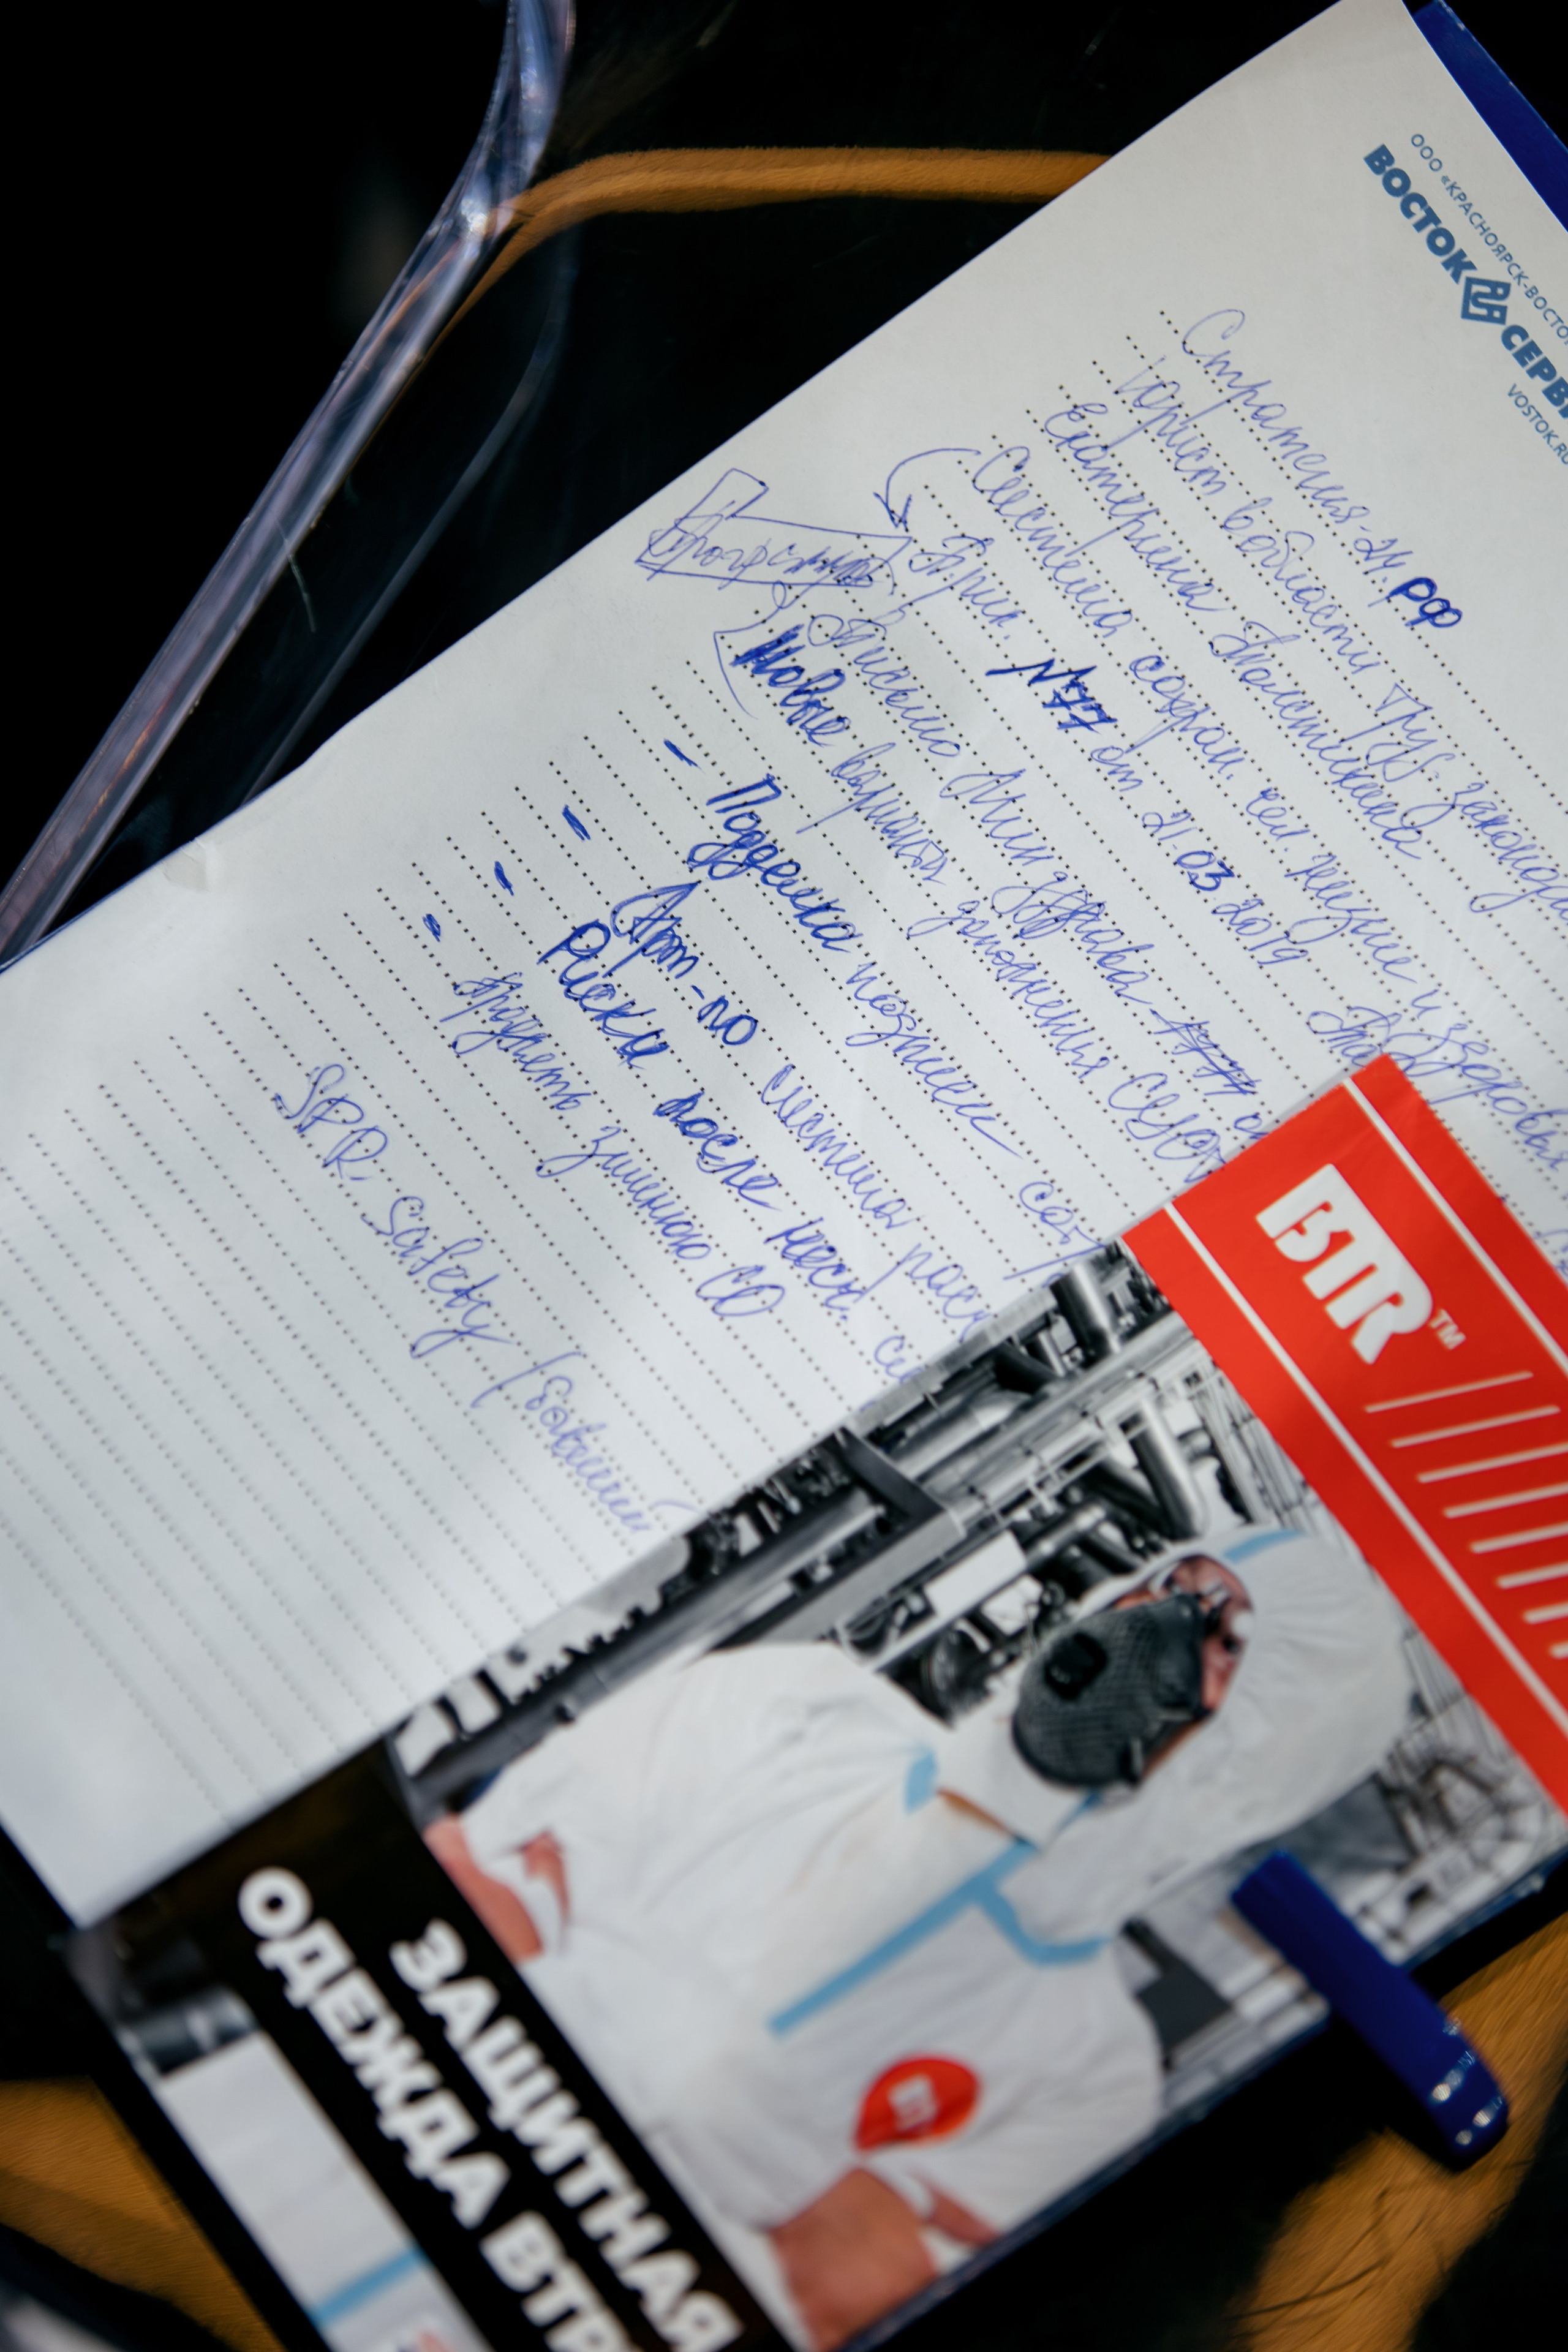 ООО «КРАСНОЯРСК-ВОСТОК
ВОСТОК СЕРВИ
VOSTOK.RU
Стратегия-24. РФ
Юрист в области труд. законода
Екатерина Толстикова
Система сохран. чел. жизни и здоровья
Прик. №77 от 21.03.2019
Программа
Письмо Минздрава
Новые варианты дополнения СУОТ
- Подделка
- Арт-по система расс
- Риски после несч.
- Продлеть зимнюю СО
SPR. Safety (бывший
ВТR™
ЗАЩИТНАЯ
ОДЕЖДА ВТR